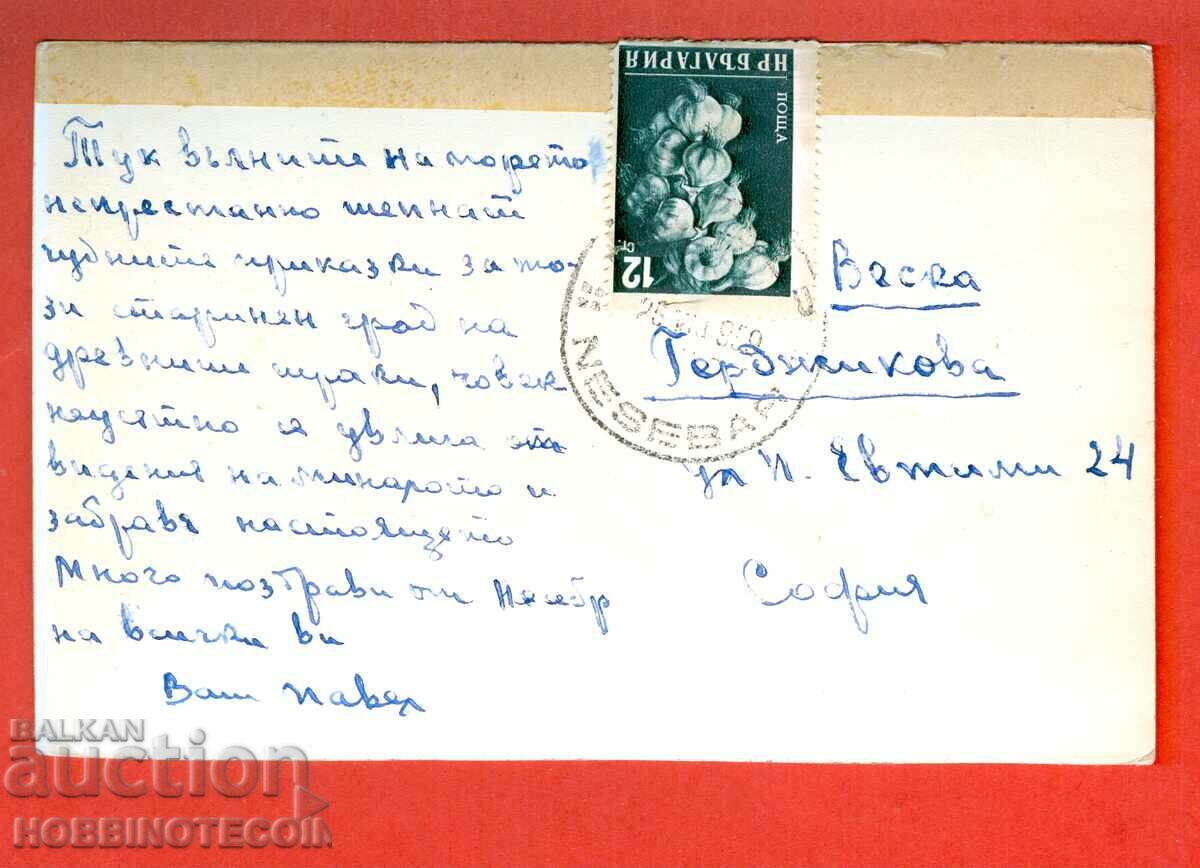 Тук вълните на морето
непрестанно шепнат
чудните приказки за то-
зи старинен град на
древните траки, човек
неусетно се увлича от
видения на миналото и
забравя настоящето
Много поздрави от Несебр
на всички ви
Ваш Павел
НР БЪЛГАРИЯ
ПОЩА
12
СТ.
NESEBAR
Веска
Герджикова
ул П. Евтими 24
София
BALKAN
auction
HOBBINOTECOIN